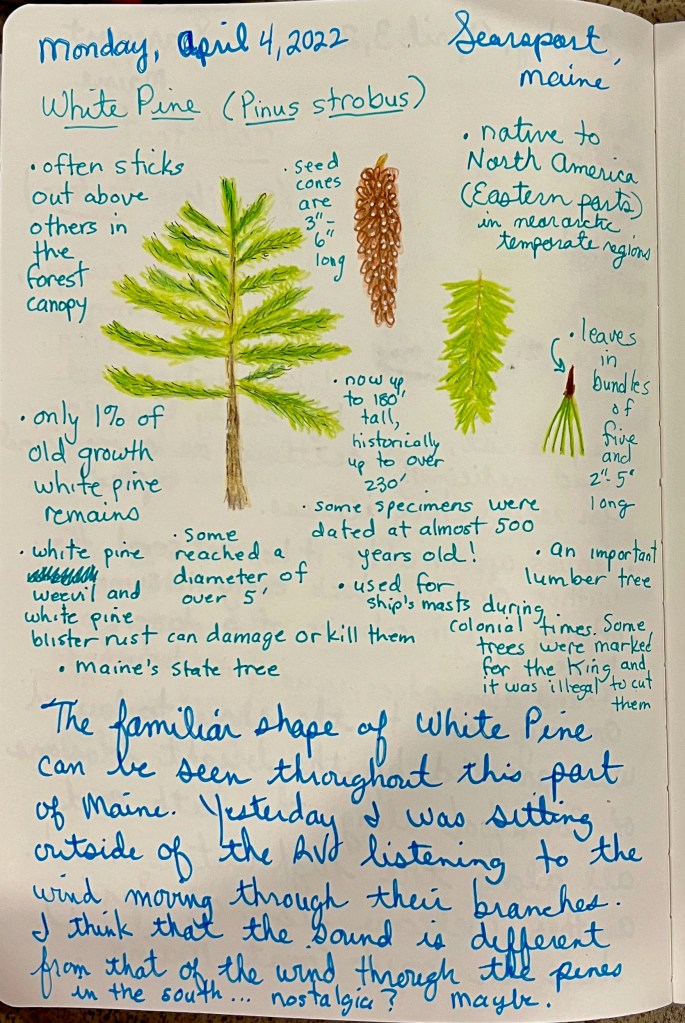 Monday, April 4, 2022
Searsport,
Maine
White Pine (Pinus strobus)
• often sticks
out above
others in
the
forest
canopy
• seed
cones
are
3"-
6"
long
• native to
North America
(Eastern parts)
in nearctic
temperate regions
• leaves
in
bundles
of
five
and
2"-5"
long
• now up
to 180'
tall,
historically
up to over
230'.
• only 1% of
old growth
white pine
remains
• some specimens were
dated at almost 500
years old!
• white pine
weevil and
white pine
blister rust can damage or kill them
• some
reached a
diameter of
over 5'
• an important
lumber tree
• used for
ship's masts during
colonial times. Some
trees were marked
for the King and
it was illegal to cut
them
• Maine's state tree
The familiar shape of White Pine
can be seen throughout this part
of Maine. Yesterday I was sitting
outside of the RV listening to the
wind moving through their branches.
I think that the sound is different
from that of the wind through the pines
in the south... nostalgia? maybe.